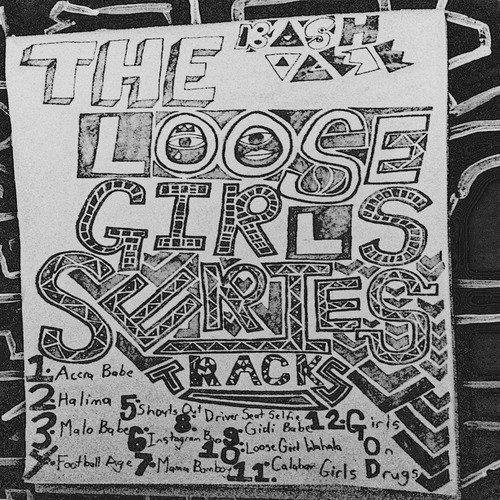 THE
BASH
LOOSE
GIRLS
SERIES
TRACKS
1. Accra Babe
2 Halima
3 Malo Babe
4. Football Age
5 Shouts Out
6. Instagram Boo
7. Mama Bomboy
8. Driver Seat Selfie
9. Gidi Babe
10 Loose Girl Wahala
11. Calabar Girls
12. Girls
On
Drugs